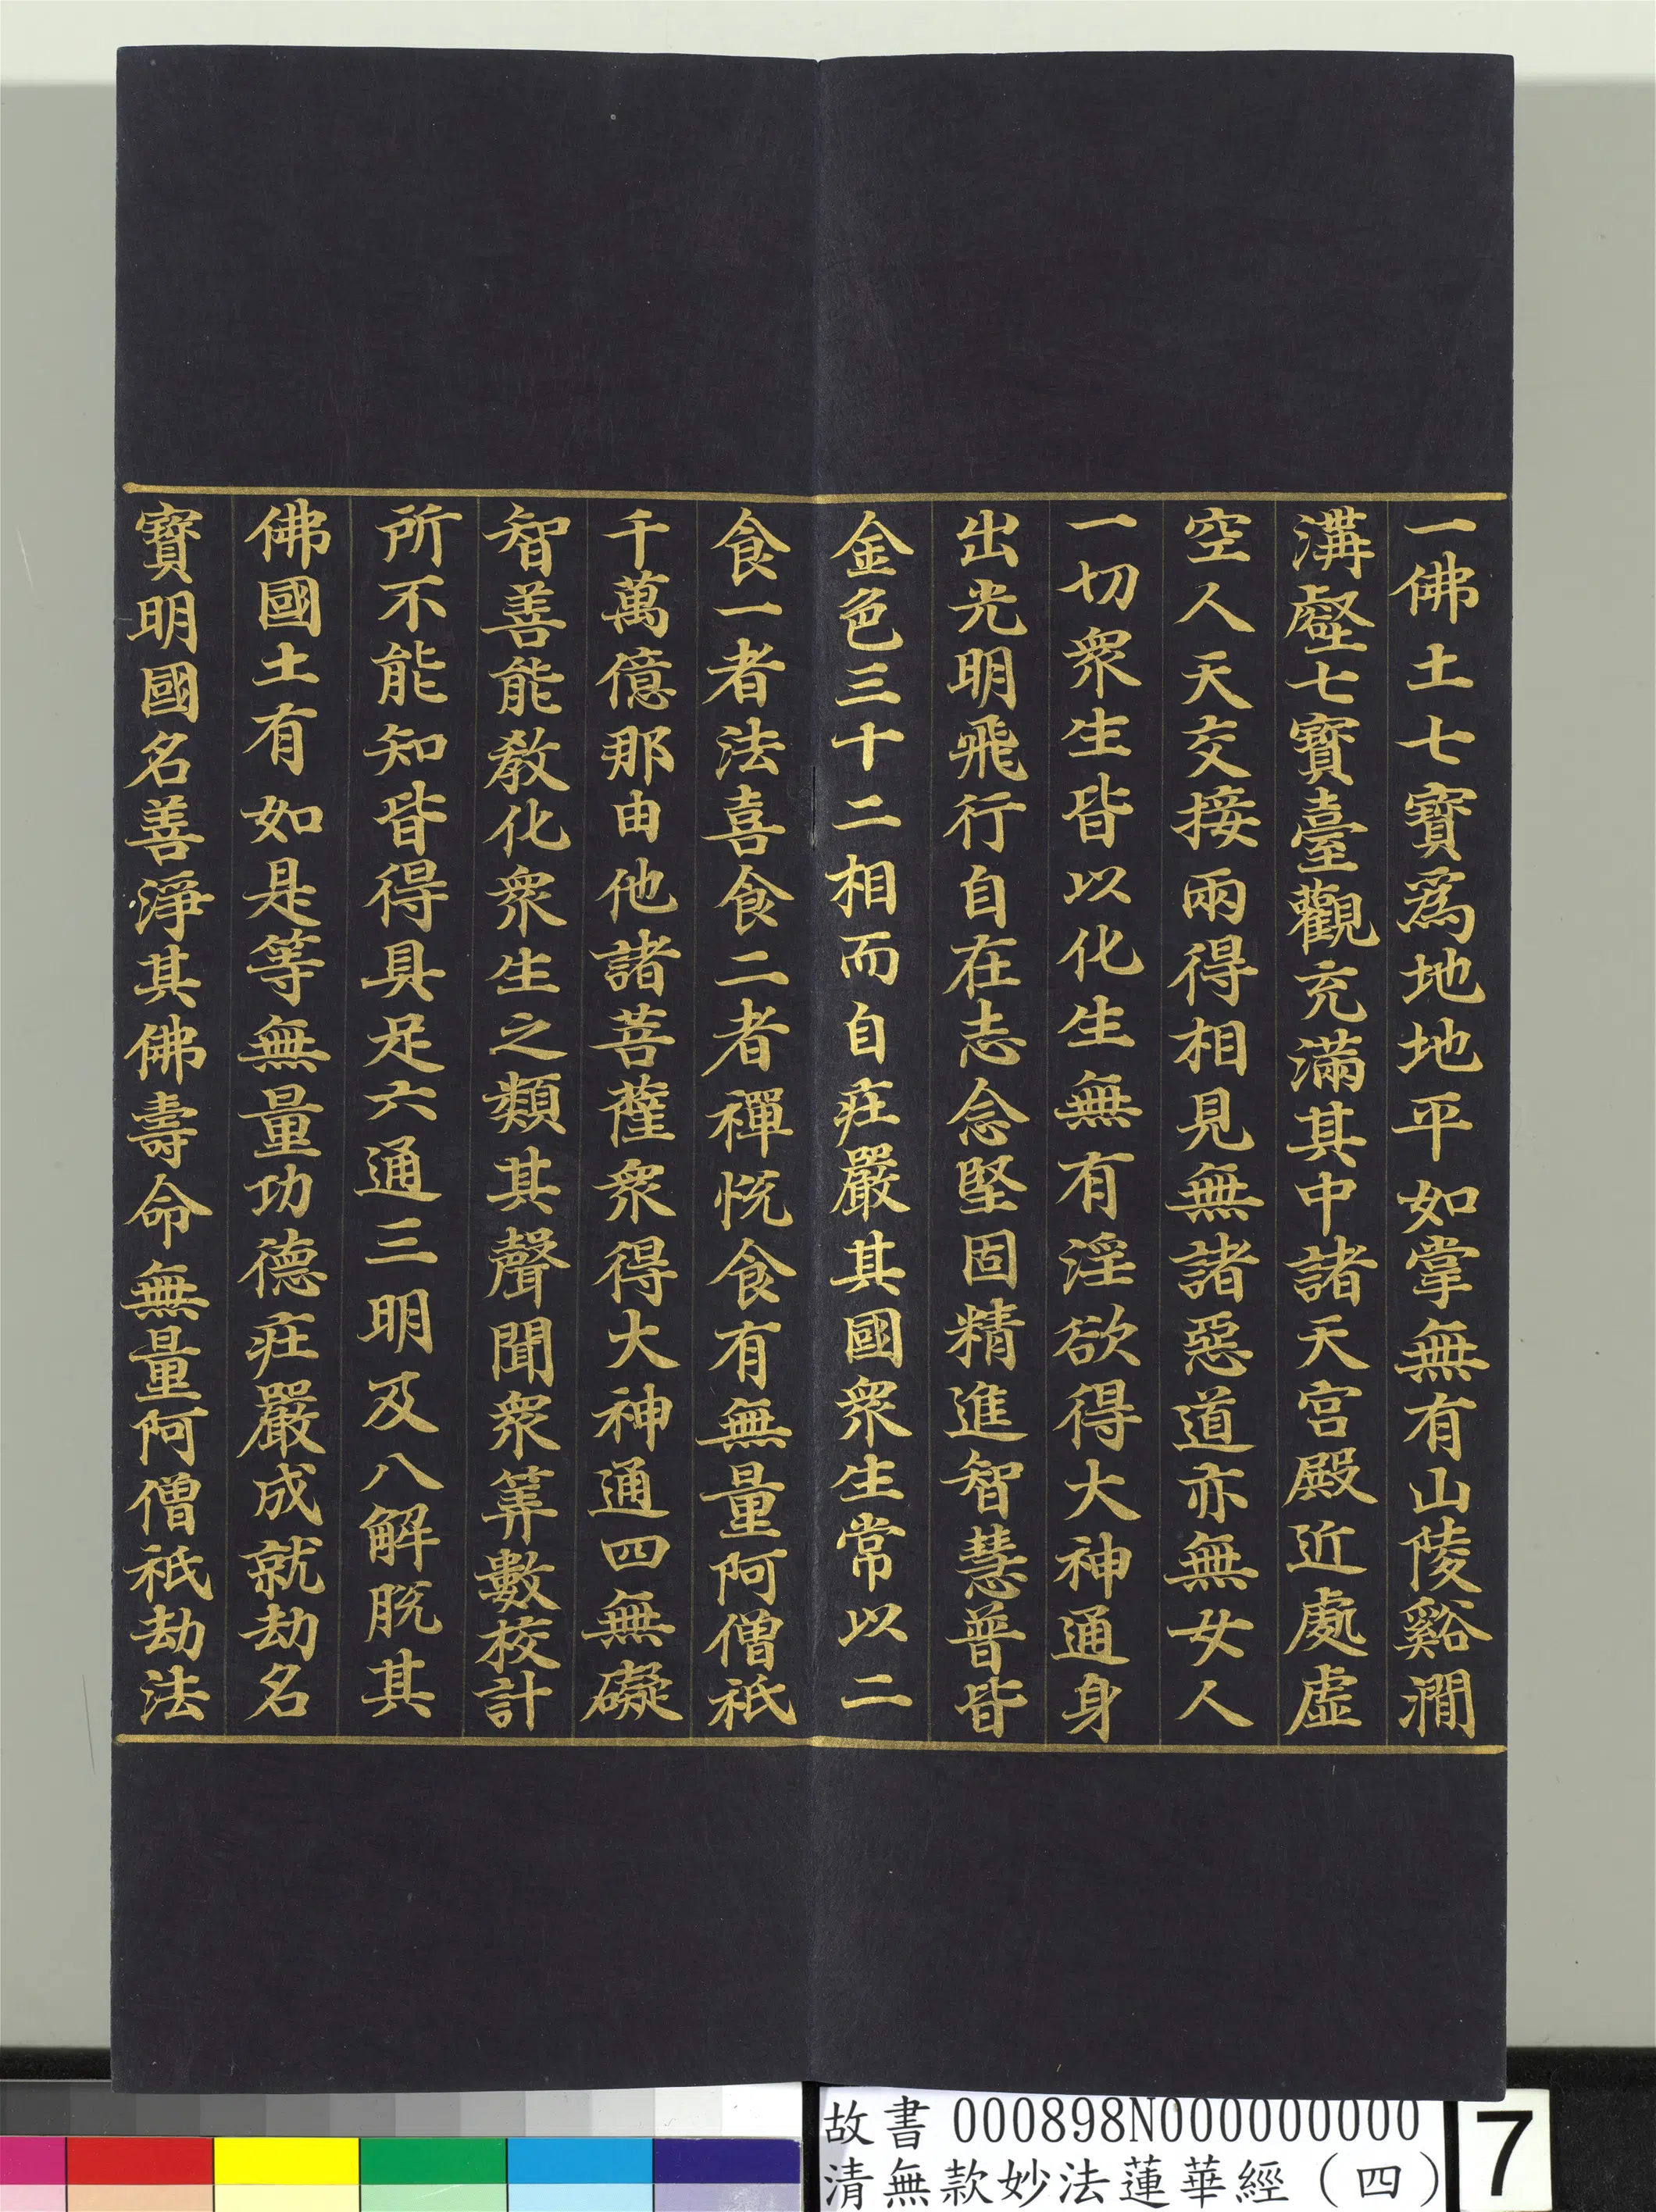 一佛土七寶為地地平如掌無有山陵谿澗
溝壑七寶臺觀充滿其中諸天宮殿近處虛
空人天交接兩得相見無諸惡道亦無女人
一切眾生皆以化生無有淫欲得大神通身
出光明飛行自在志念堅固精進智慧普皆
金色三十二相而自莊嚴其國眾生常以二
食一者法喜食二者禪悅食有無量阿僧祇
千萬億那由他諸菩薩眾得大神通四無礙
智善能教化眾生之類其聲聞眾筭數校計
所不能知皆得具足六通三明及八解脫其
佛國土有如是等無量功德莊嚴成就劫名
寶明國名善淨其佛壽命無量阿僧祇劫法
故書000898N000000000
清無款妙法蓮華經(四)
7